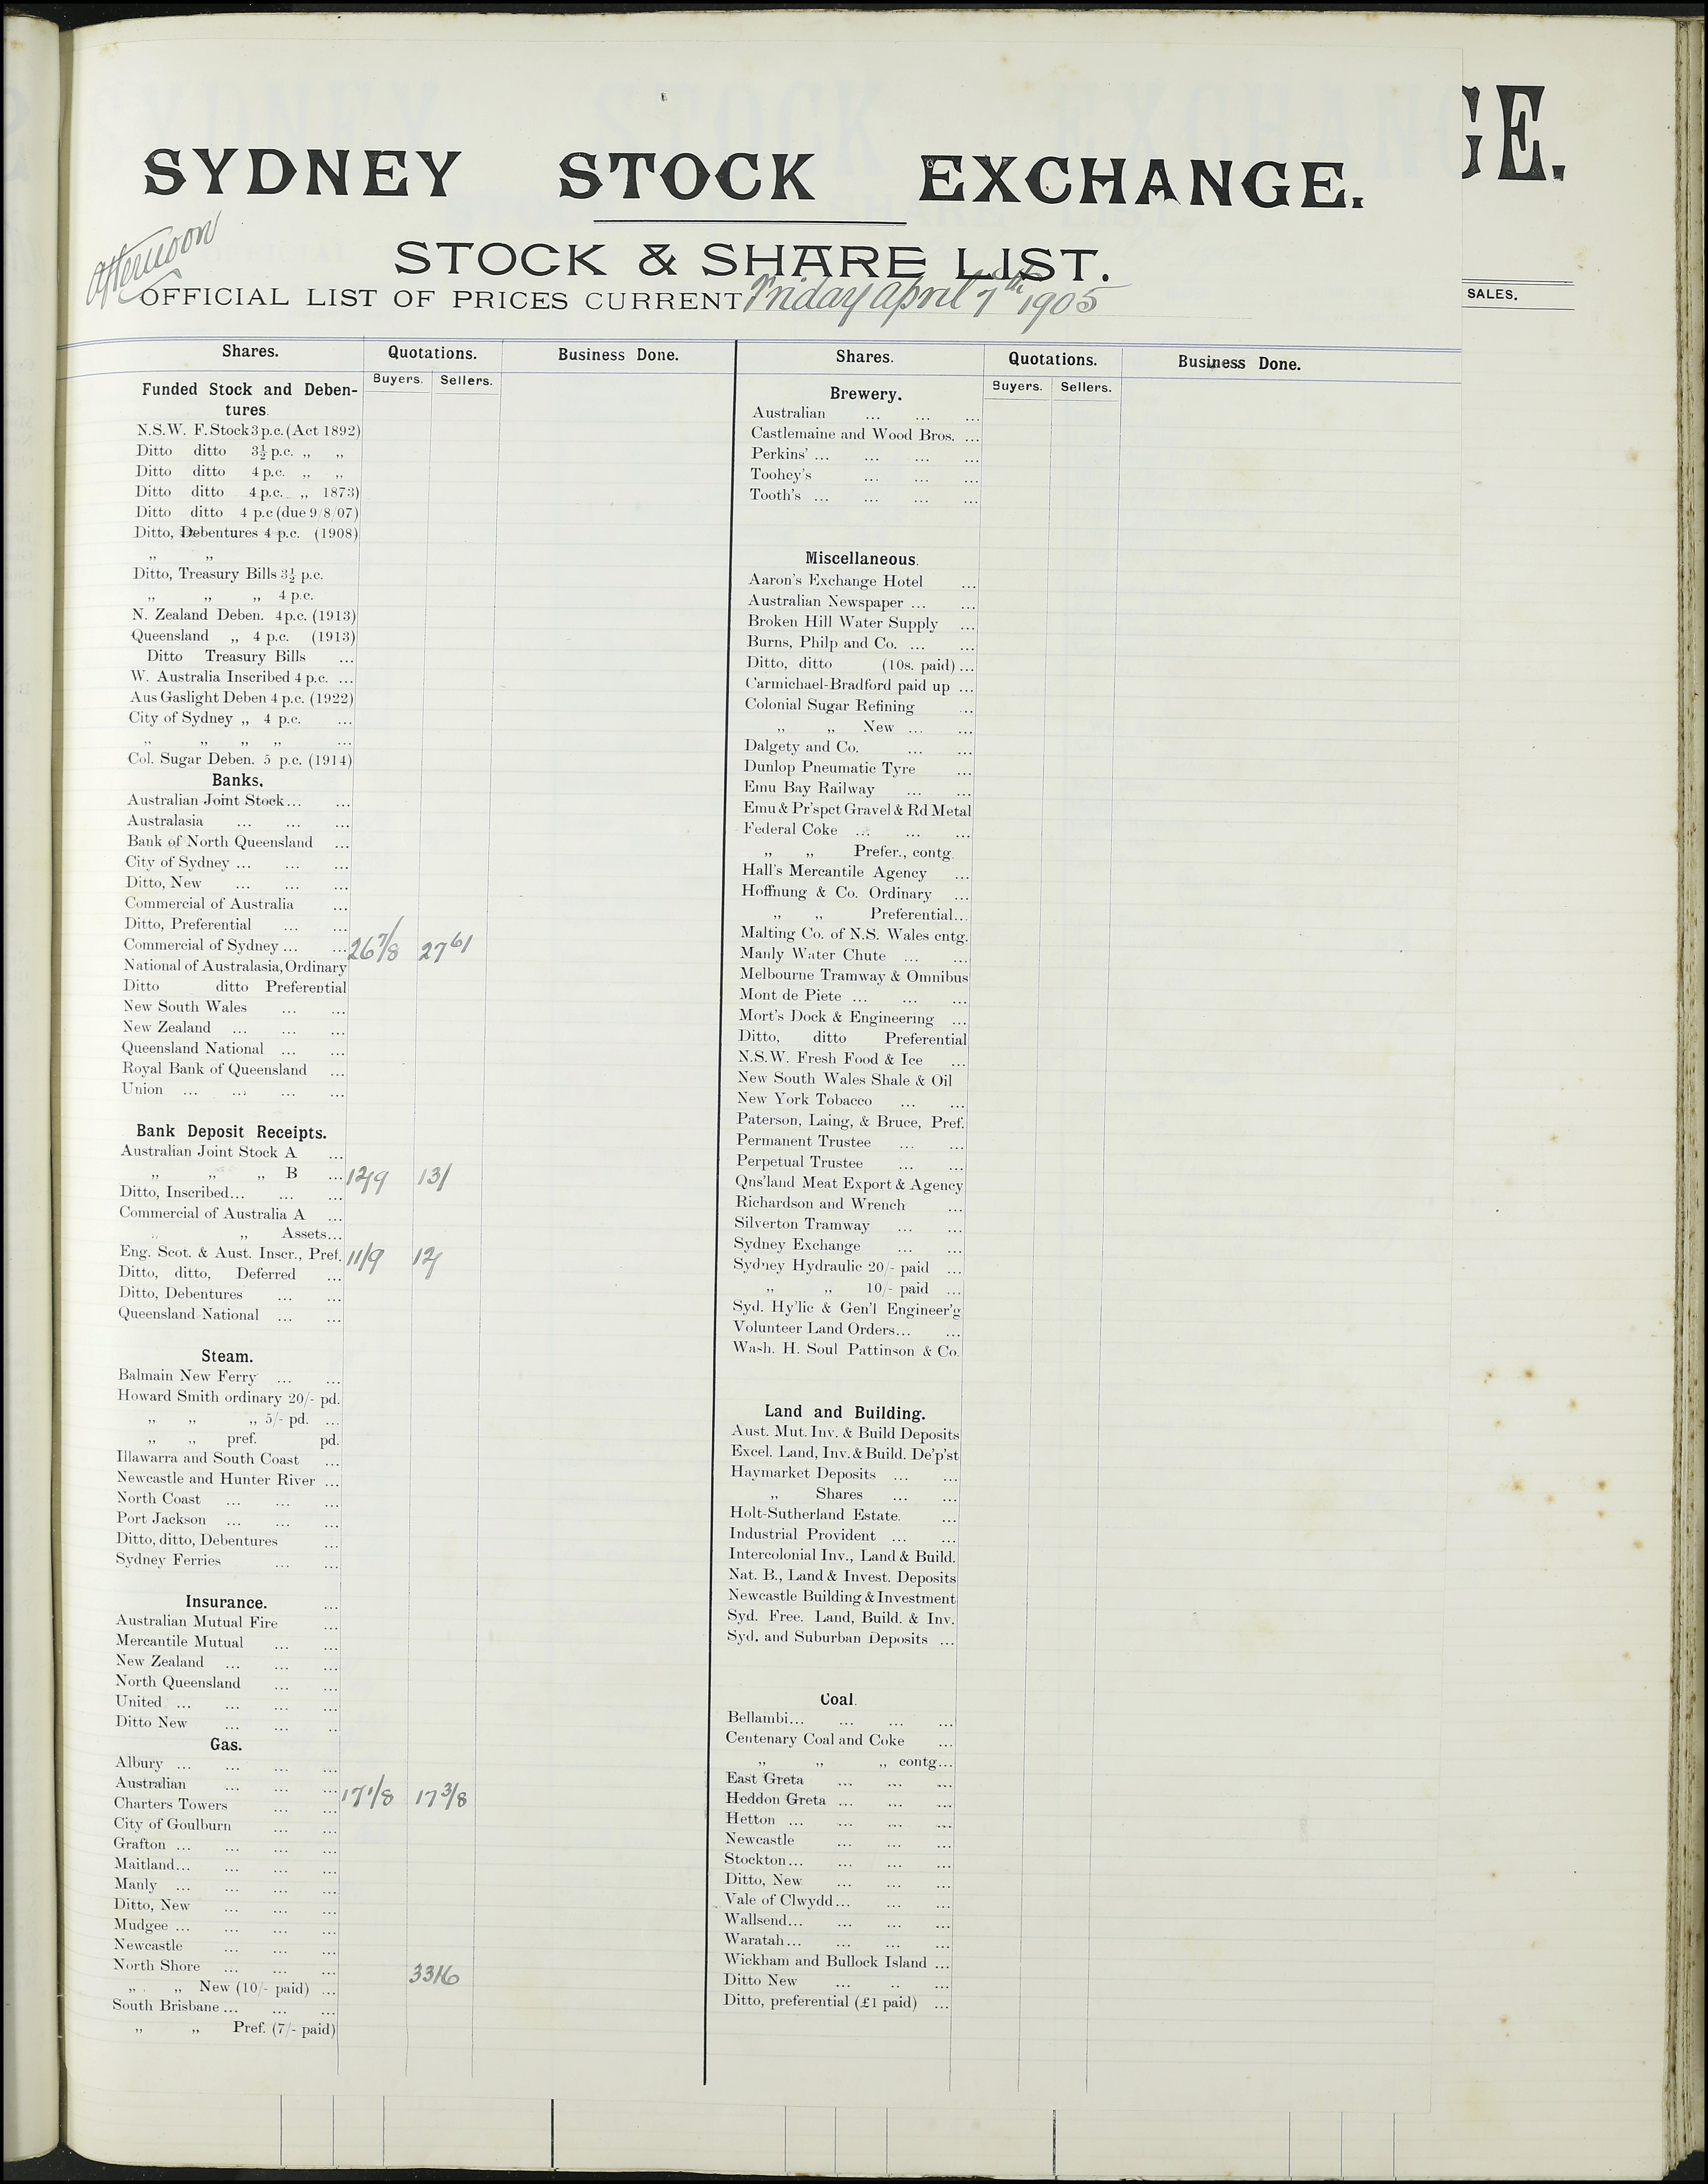 SYDNEY STOCK EXCHANGE.
GE.
Afternoon
STOCK & SHARE LIST.
OFFICIAL LIST OF PRICES CURRENT Friday april 7th 1905
SALES.
Shares. Quotations. Business Done.
Buyers. Sellers.
Funded Stock and Deben-
tures.
N.S.W. F. Stock 3 p.c. (Act 1892)
Ditto ditto 3½ p.c. „ „
Ditto ditto 4 p.c. „ „
Ditto ditto 4 p.c. „ 1873)
Ditto ditto 4 p.c (due 9/8/07)
Ditto, Debentures 4 p.c. (1908)
„ „
Ditto, Treasury Bills 3½ p.c.
„ „ „ 4 p.c.
N. Zealand Deben. 4 p.c. (1913)
Queensland „ 4 p.c. (1913)
Ditto Treasury Bills ...
W. Australia Inscribed 4 p.c. ...
Aus Gaslight Deben 4 p.c. (1922)
City of Sydney „ 4 p.c. ...
„ „ „ „ ...
Col. Sugar Deben. 5 p.c. (1914)
Banks.
Australian Joint Stock... ...
Australasia ... ... ...
Bank of North Queensland ...
City of Sydney ... ... ...
Ditto, New ... ... ...
Commercial of Australia ...
Ditto, Preferential ... ...
Commercial of Sydney ... ... 26 7/8 27 61
National of Australasia, Ordinary
Ditto ditto Preferential
New South Wales ... ...
New Zealand ... ... ...
Queensland National ... ...
Royal Bank of Queensland ...
Union ... ... ... ...
Bank Deposit Receipts.
Australian Joint Stock A ...
„ „ „ B ... 12/9 13/
Ditto, Inscribed... ... ...
Commercial of Australia A ...
„ „ Assets...
Eng. Scot. & Aust. Inscr., Pref. 11/9 12/
Ditto, ditto, Deferred ...
Ditto, Debentures ... ...
Queensland National ... ...
Steam.
Balmain New Ferry ... ...
Howard Smith ordinary 20/- pd.
„ „ „ 5/- pd. ...
„ „ pref. pd.
Illawarra and South Coast ...
Newcastle and Hunter River ...
North Coast ... ... ...
Port Jackson ... ... ...
Ditto, ditto, Debentures ...
Sydney Ferries ... ...
Insurance. ...
Australian Mutual Fire ...
Mercantile Mutual ... ...
New Zealand ... ... ...
North Queensland ... ...
United ... ... ... ...
Ditto New ... ... ..
Gas.
Albury ... ... ... ...
Australian ... ... ... 17 1/8 17 3/8
Charters Towers ... ...
City of Goulburn ... ...
Grafton ... ... ... ...
Maitland... ... ... ...
Manly ... ... ... ...
Ditto, New ... ... ...
Mudgee ... ... ... ...
Newcastle ... ... ...
North Shore ... ... ... 33/6
„ „ New (10/- paid) ...
South Brisbane ... ... ...
„ „ Pref. (7/- paid)
Shares. Quotations. Business Done.
Buyers. Sellers.
Brewery.
Australian ... ... ...
Castlemaine and Wood Bros. ...
Perkins' ... ... ... ...
Toohey's ... ... ...
Tooth's ... ... ... ...
Miscellaneous.
Aaron's Exchange Hotel ...
Australian Newspaper ... ...
Broken Hill Water Supply ...
Burns, Philp and Co. ... ...
Ditto, ditto (10s. paid) ...
Carmichael-Bradford paid up ...
Colonial Sugar Refining ...
„ „ New ... ...
Dalgety and Co. ... ...
Dunlop Pneumatic Tyre ...
Emu Bay Railway ... ...
Emu & Pr'spct Gravel & Rd Metal
Federal Coke ... ... ...
„ „ Prefer., contg.
Hall's Mercantile Agency ...
Hoffnung & Co. Ordinary ...
„ „ Preferential...
Malting Co. of N.S. Wales cntg.
Manly Water Chute ... ...
Melbourne Tramway & Omnibus
Mont de Piete ... ... ...
Mort's Dock & Engineering ...
Ditto, ditto Preferential
N.S.W. Fresh Food & Ice ...
New South Wales Shale & Oil
New York Tobacco ... ...
Paterson, Laing, & Bruce, Pref.
Permanent Trustee ... ...
Perpetual Trustee ... ...
Qns'land Meat Export & Agency
Richardson and Wrench ...
Silverton Tramway ... ...
Sydney Exchange ... ...
Sydney Hydraulic 20/- paid ...
„ „ 10/- paid ...
Syd. Hy'lic & Gen'l Engineer'g
Volunteer Land Orders... ...
Wash. H. Soul Pattinson & Co.
Land and Building.
Aust. Mut. Inv. & Build Deposits
Excel. Land, Inv. & Build. De'p'st
Haymarket Deposits ... ...
„ Shares ... ...
Holt-Sutherland Estate. ...
Industrial Provident ... ...
Intercolonial Inv., Land & Build.
Nat. B., Land & Invest. Deposits
Newcastle Building & Investment
Syd. Free. Land, Build. & Inv.
Syd. and Suburban Deposits ...
Coal.
Bellambi... ... ... ...
Centenary Coal and Coke ...
„ „ „ contg...
East Greta ... ... ...
Heddon Greta ... ... ...
Hetton ... ... ... ...
Newcastle ... ... ...
Stockton... ... ... ...
Ditto, New ... ... ...
Vale of Clwydd... ... ...
Wallsend... ... ... ...
Waratah... ... ... ...
Wickham and Bullock Island ...
Ditto New ... .. ...
Ditto, preferential (£1 paid) ...